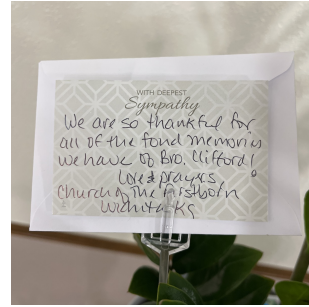 WITH DEEPEST
Sympathy
We are so thankful for
all of the fond memories
we have of Bro. Clifford!
Love & prayers
Church of the Firstborn
Wichita KS